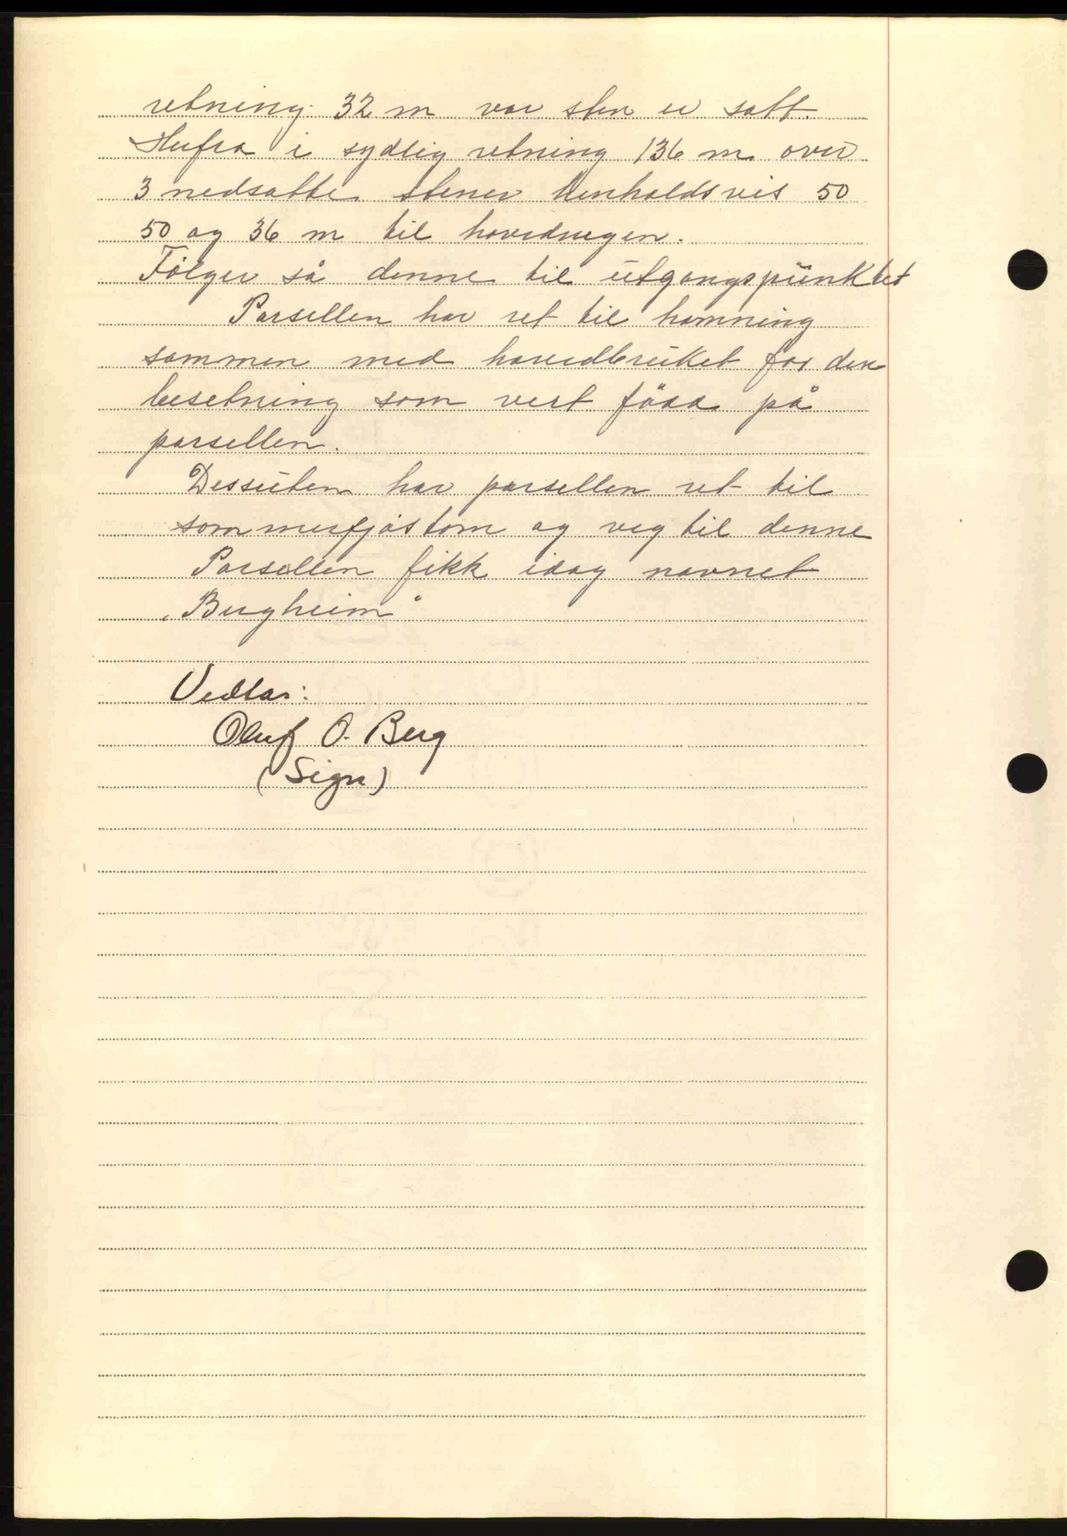 retning 32 m var sten er satt.
Herfra i sydlig retning 136 m over
3 nedsatte stener henholdsvis 50
50 og 36 m til hovedvegen.
Følger så denne til utgangspunktet
Parsellen har ret til hamning
sammen med hovedbruket for den
besetning som vert född på
parsellen.
Dessuten har parsellen ret til
sommerfjøstom og veg til denne
Parsellen fikk idag navnet
"Bergheim"
Vedtar:
Oluf O. Berg
(Sign)